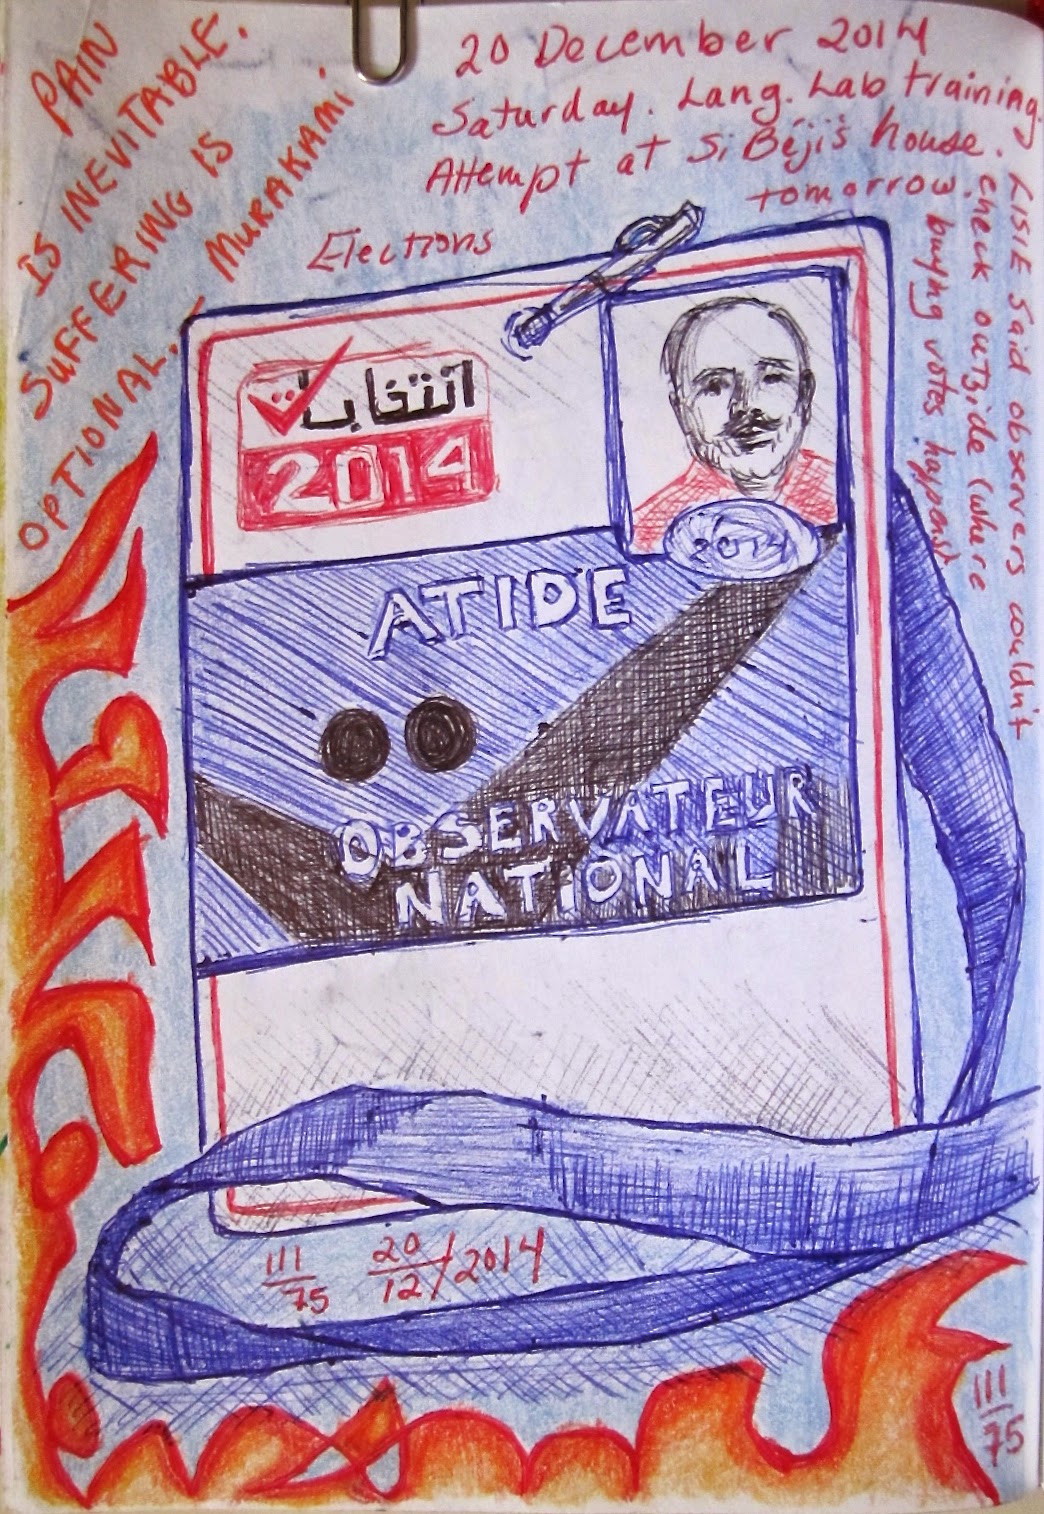 PAIN
IS INEVITABLE.
SUFFERING IS
OPTIONAL. - MURAKAMI
20 December 2014
Saturday. Lang. Lab training.
Attempt at Si Béji's house.
tomorrow.
Elections
LISIE said observers couldn't
check outside (where
buying votes happens)
انتخابات
2014
2014
ATIDE
OBSERVATEUR
NATIONAL
111/75 20/12/2014
111/75